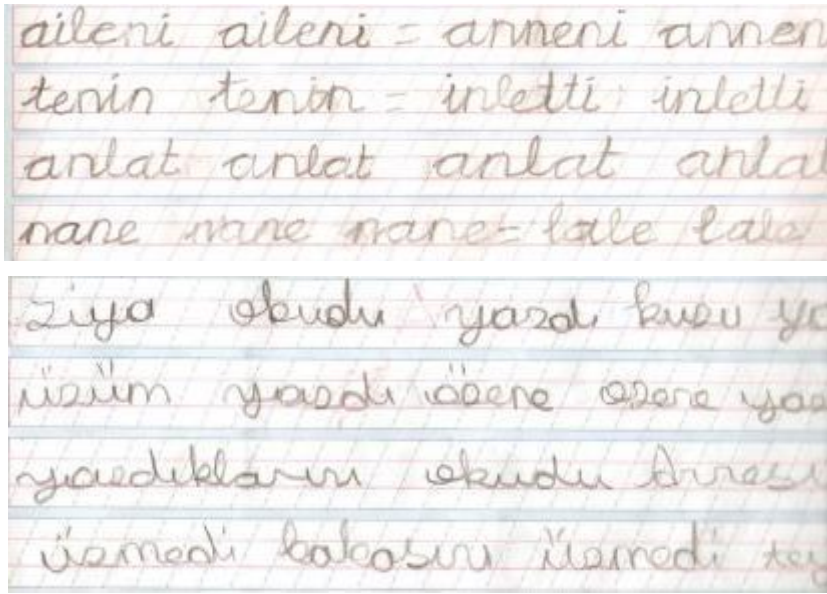 aileni aileni = anneni annen
tenin tenin = inletti inletti
anlat anlat anlat anlat
nane nane nane = lale lale
ziya okudu yazdı kuzu ya
üzüm yazdı özene ozene yaz
yazdıklarını okudu Annesi
üzmedi babasını üzmedi tey